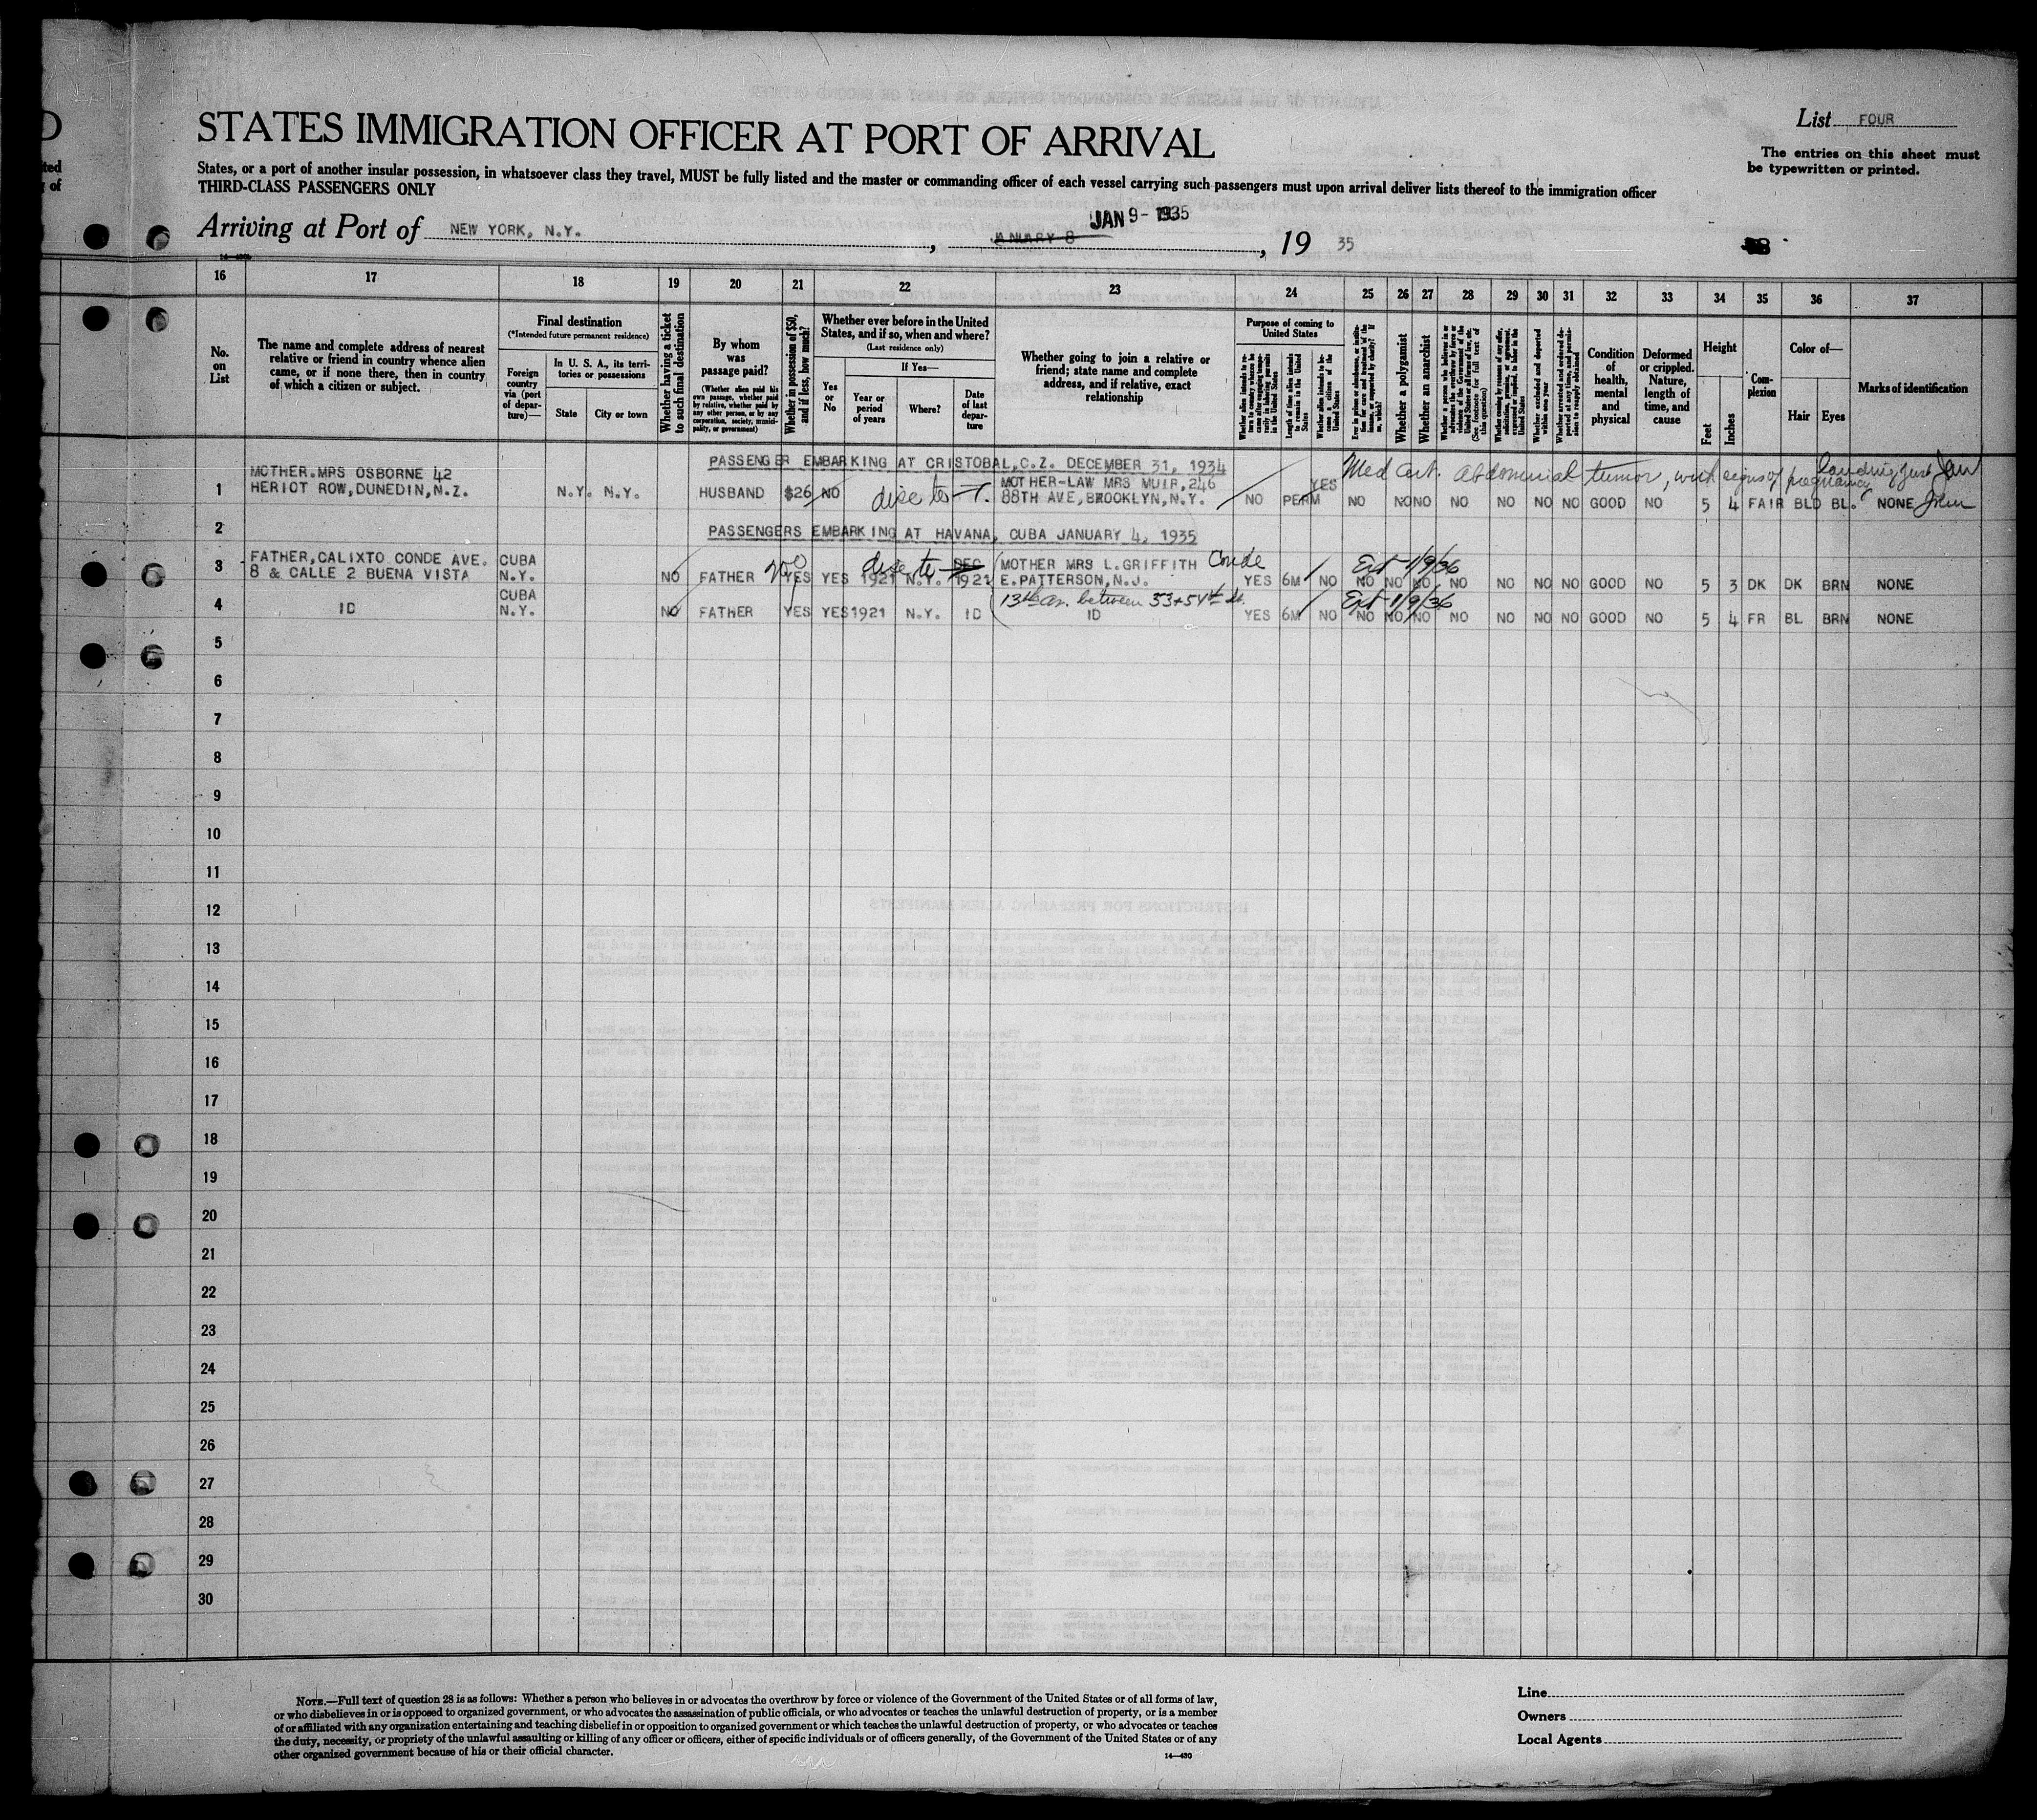 List FOUR
STATES IMMIGRATION OFFICER AT PORT OF ARRIVAL
The entries on this sheet must
be typewritten or printed.
States, or a port of another insular possession, in whatsoever class they travel, MUST be fully listed and the master or commanding officer of each vessel carrying such passengers must upon arrival deliver lists thereof to the immigration officer
THIRD-CLASS PASSENGERS ONLY
JAN 9 - 1935
Arriving at Port of NEW YORK, N.Y., JANUARY 8, 19 35
16 17 18 19 20 21 22 23 24 25 26 27 28 29 30 31 32 33 34 35 36 37
No. on List
The name and complete address of nearest relative or friend in country whence alien came, or if none there, then in country of which a citizen or subject.
Final destination
(*Intended future permanent residence)
Foreign country via (port of departure)—
In U. S. A., its territories or possessions
State
City or town
Whether having a ticket to such final destination
By whom was passage paid?
(Whether alien paid his own passage, whether paid by relative, whether paid by any other person, or by any corporation, society, municipality, or government)
Whether in possession of $50, and if less, how much?
Whether ever before in the United States, and if so, when and where?
(Last residence only)
Yes or No
If Yes—
Year or period of years
Where?
Date of last departure
Whether going to join a relative or friend; state name and complete address, and if relative, exact relationship
Purpose of coming to United States
Length of time alien intends to remain in the United States
Whether alien intends to become a citizen of the United States
Whether a polygamist
Whether an anarchist
(See footnote for full text of this question)
Whether excluded and deported within one year
Condition of health, mental and physical
Deformed or crippled. Nature, length of time, and cause
Height
Feet
Inches
Complexion
Color of—
Hair
Eyes
Marks of identification
PASSENGER EMBARKING AT CRISTOBAL, C.Z. DECEMBER 31, 1934
Med Cert. abdominal tumor, with signs of pregnancy
1 MOTHER.MRS OSBORNE 42 HERIOT ROW, DUNEDIN, N.Z. N.Y. N.Y. HUSBAND $26 NO MOTHER-LAW MRS MUIR, 246 88TH AVE, BROOKLYN, N.Y. NO PERM YES NO NO NO NO NO NO NO GOOD NO 5 4 FAIR BLD BL. NONE
2 PASSENGERS EMBARKING AT HAVANA, CUBA JANUARY 4, 1935
3 FATHER, CALIXTO CONDE AVE. 8 & CALLE 2 BUENA VISTA CUBA N.Y. NO FATHER YES YES 1921 N.Y. DEC 1921 MOTHER MRS L.GRIFFITH Conde E.PATTERSON, N.J. YES 6M NO Ext 1/9/36 NO NO NO NO NO NO NO GOOD NO 5 3 DK DK BRN NONE
4 ID CUBA N.Y. NO FATHER YES YES 1921 N.Y. ID 13th av. between 53+54th st. ID YES 6M NO Ext 1/9/36 NO NO NO NO NO NO NO GOOD NO 5 4 FR BL BRN NONE
5
6
7
8
9
10
11
12
13
14
15
16
17
18
19
20
21
22
23
24
25
26
27
28
29
30
NOTE.—Full text of question 28 is as follows: Whether a person who believes in or advocates the overthrow by force or violence of the Government of the United States or of all forms of law,
or who disbelieves in or is opposed to organized government, or who advocates the assassination of public officials, or who advocates or teaches the unlawful destruction of property, or is a member
of or affiliated with any organization entertaining and teaching disbelief in or opposition to organized government or which teaches the unlawful destruction of property, or who advocates or teaches
the duty, necessity, or propriety of the unlawful assaulting or killing of any officer or officers, either of specific individuals or of officers generally, of the Government of the United States or of any
other organized government because of his or their official character.
14—430
Line
Owners
Local Agents